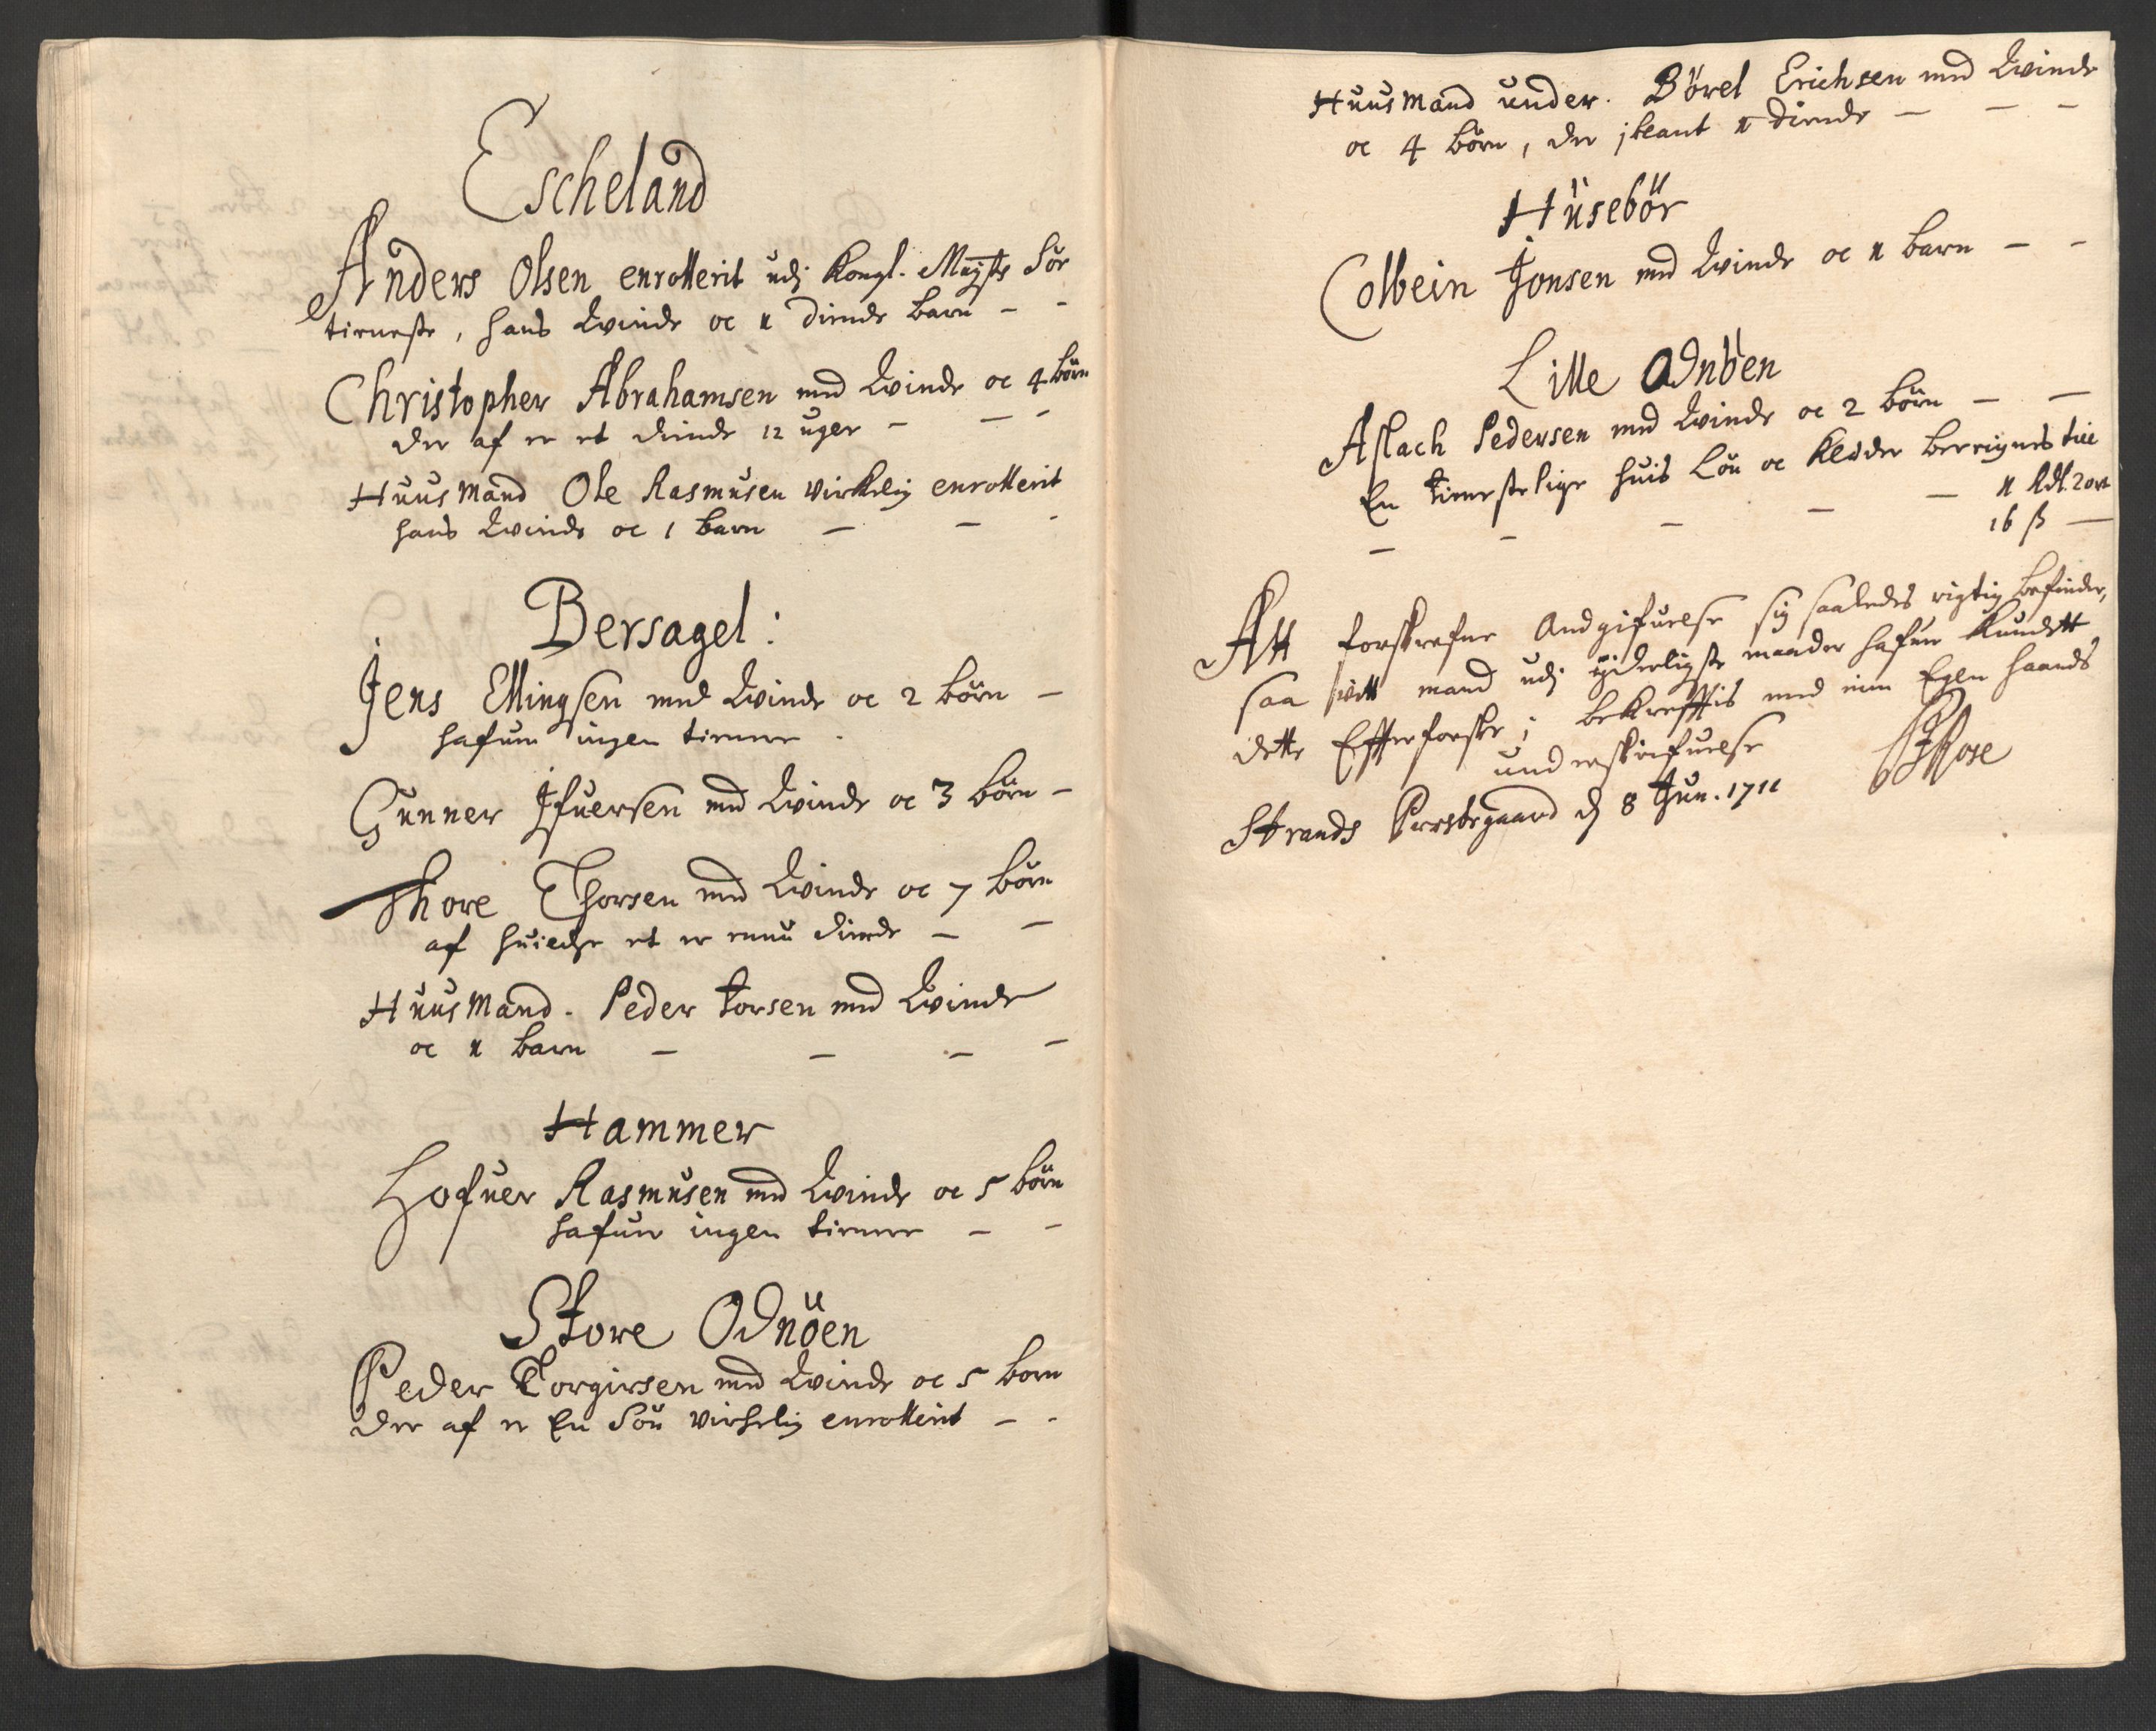 Escheland
Anders Olsen enrollerit udj Kongl. Maysts Söe
tieneste, hans Qvinde oc 1 diende barn - -
Christopher Abrahamsen med Qvinde oc 4 börn
der af er et diende 12 uger - - -
Huusmand Ole Rasmusen virkelig enrollerit
hans Qvinde oc 1 barn - - -
Bersagel:
Jens Ellingsen med Qvinde oc 2 börn -
hafuer ingen tienere
Gunner Ifuersen med Qvinde oc 3 börn -
Thore Thorsen med Qvinde oc 7 börn
af huilche et er ennu diende - -
Huusmand. Peder Torsen med Qvinde
oc 1 barn - - - -
Hammer
Hofuer Rasmusen med Qvinde oc 5 börn
hafuer ingen tienere - -
Store Odnöen
Peder Torgirsen med Qvinde oc 5 born
der af er En Sön virkelig enrollerit - -
Huusmand under. Börel Erichsen med Qvinde
oc 4 börn, der jblant 1 diende - - -
Hüseböe
Colbein Jonsen med Qvinde oc 1 barn - -
Lille Odnöen
Aslach Pedersen med Qvinde oc 2 börn - -
En tieneste pige huis Lön oc Kleder beregnes till
- - - - - 1 Rdl. 2 ort
16 ß -
Att forskrefne Andgifuelse sig saaledes rigtig befinder,
saa vitt mand udj yderligste maader hafuer kundett
dette Efterforske; bekrefftis med min Egen haands
underskrifuelse
Strands Prestegaard d 8 Jun. 1711
Rose